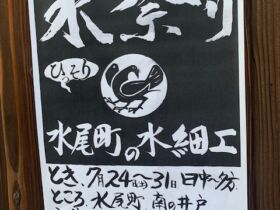 氷祭り
ひっそり
水尾町の水細工
とき、7月24(土)~31日 日中~夕方
ところ、水尾町 南の井戸